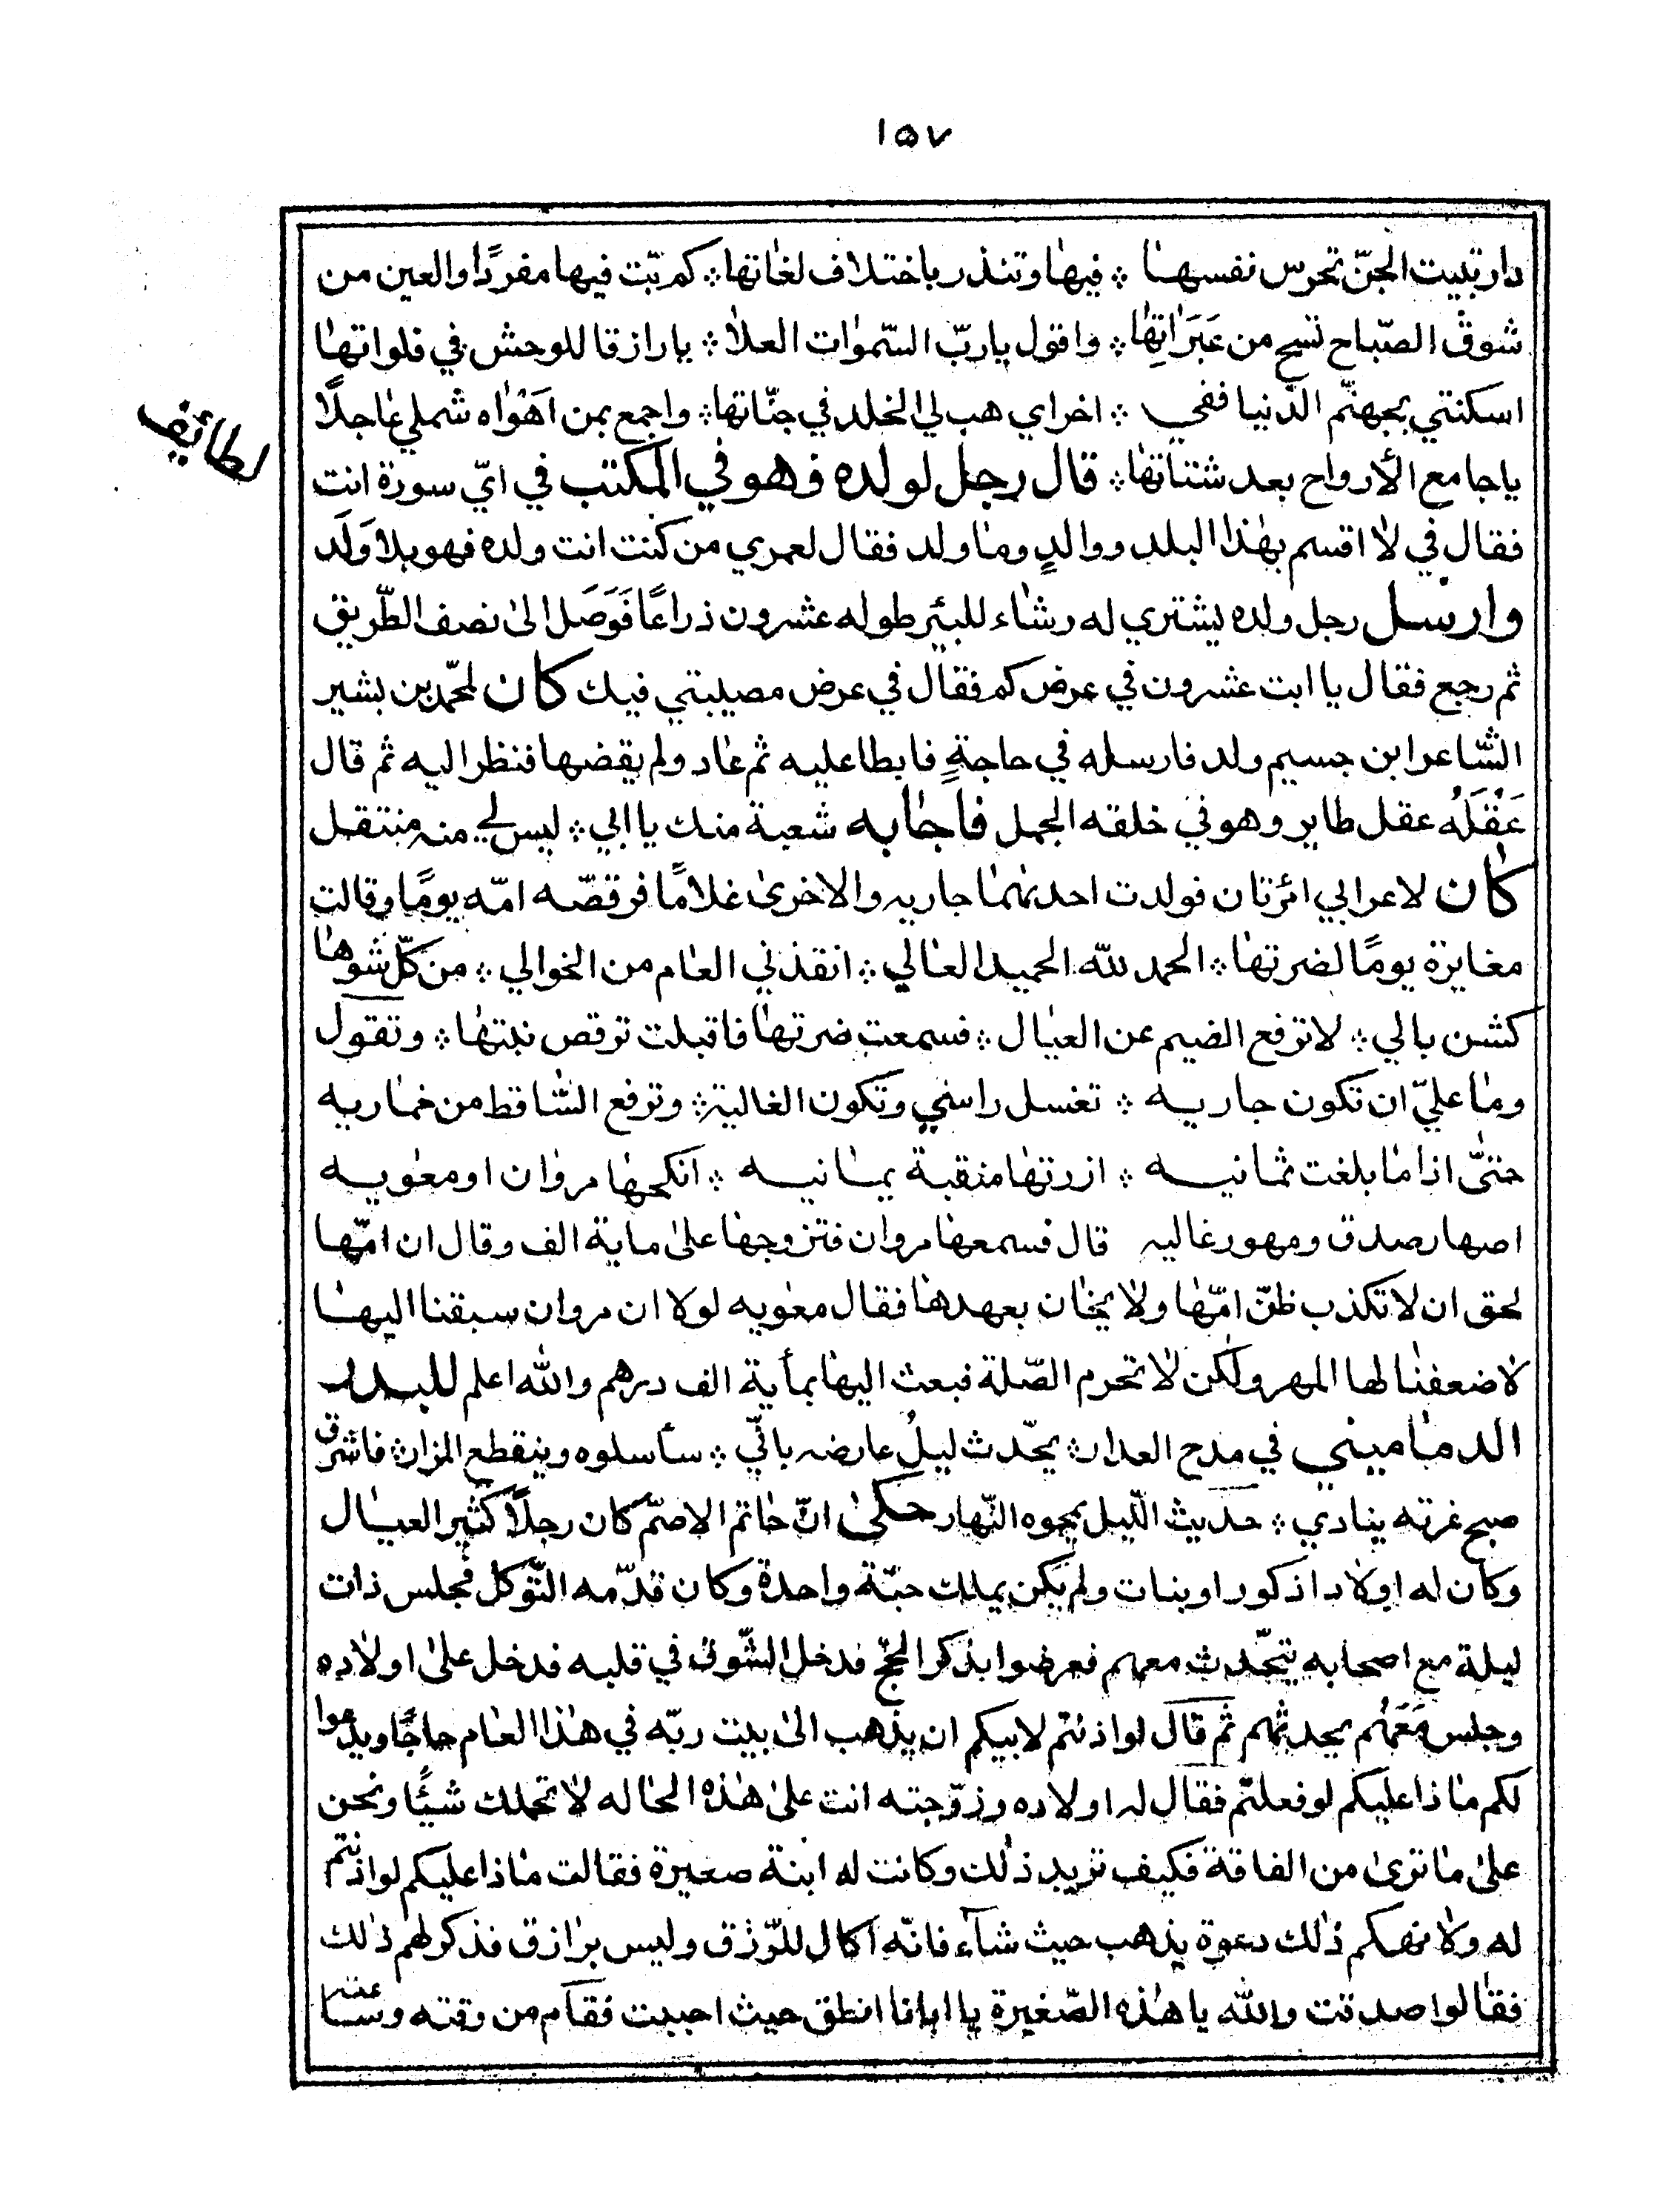 ١٥٧
دار تبيت الجنّ تحرس نفسها ؞ فيها وتنذر باختلاف لغاتها ؞ كم بتّ فيها مفردًا والعين من
شوق الصّباح تسح من عَبَرَاتِها ؞ واقول يا ربّ السّموات العلا ؞ يا رازقا للوحش في فلواتها
اسكنتي بجهنّم الدّنيا ففي ؞ اخراي هب لي الخلد في جنّاتها ؞ واجمع بمن اَهْواه شملي عاجلاً
لطائف
يا جامع الأرواح بعد شتاتها ؞ قال رجل لولده وهو في المكتب في ايّ سورة انت
فقال في لا اقسم بهذا البلد ووالدٍ وما ولد فقال لعمري من كنت انت ولده فهو بلا وَلَد
وارسل رجل ولده يشتري له رشاء للبئر طوله عشرون ذراعًا فَوَصَل الى نصف الطّريق
ثم رجع فقال يا ابت عشرون في عرض كم فقال في عرض مصيبتي فيك كان لمحمّد بن بشير
الشّاعر ابن جسيم ولد فارسله في حاجةٍ فابطا عليه ثم عاد ولم يقضها فنظر اليه ثم قال
عَقْلَهُ عقل طاير وهو في خلقه الجمل فاجابه شعبة منك يا ابي ؞ ليس لي منه منتقل
كان لاعرابي امرتان فولدت احديهما جاريه والاخرى غلامًا فرقصّه امّه يومًا وقالت
مغايرة يومًا لضرتها ؞ الحمد للّه الحميد العالي ؞ انقذني العام من الخوالي ؞ من كلّ شوها
كشن بالي ؞ لا ترفع الضيم عن العيال ؞ فسمعت ضرتها فاقبلت ترقص بنتها ؞ وتقول
وما عليّ ان تكون جاريه ؞ تغسل راسي وتكون الغالية ؞ وترفع السّاقط من خماريه
حتىّ اذا ما بلغت ثمانيه ؞ ازرتها منقبة يمانيه ؞ انكحها مروان او معويه
اصهار صدق ومهور غاليه قال فسمعها مروان فتزوجها على ماية الف وقال ان امّها
لحق ان لا تكذب ظنّ امّها ولا يخان بعهدها فقال معويه لولا ان مروان سبقنا اليها
لاضعفنا لها المهر ولكن لا تحرم الصّلة فبعث اليها بمأية الف درهم واللّه اعلم للبدر
الدماميني في مدح العدار ؞ يحّدث ليلُ عارضه باني ؞ سأسلوه وينقطع المزار ؞ فاشرق
صبح غرته ينادي ؞ حديث اللّيل يمحوه النّهار حكى انّ حاتم الاصمّ كان رجلاً كثير العيال
وكان له اولادا ذكورا وبنات ولم يكن يملك حبّة واحدة وكان قدّمه التّوكل فجلس ذات
ليلة مع اصحابه يتحّدث معهم فعرضوا بذكر الحجّ فدخل الشّوق في قلبه فدخل على اولاده
وجلس مَعَهُم يحدثهم ثم قال لو اذنتم لابيكم ان يذهب الى بيت ربّه في هذا العام حاجًا ويدعوا
لكم ما ذا عليكم لو فعلتم فقال له اولاده وزوّجته انت على هذه الحاله لا تملك شيئًا ونحن
على ما ترى من الفاقة فكيف تريد ذلك وكانت له ابنة صغيرة فقالت ما ذا عليكم لو اذنتم
له ولا نهمكم ذلك دعوة يذهب حيث شآء فانّه اكال للرّزق وليس برازق فذكر لهم ذلك
فقالوا صدقت واللّه يا هذه الصّغيرة يا ابانا انطق حيث احببت فقام من وقته وساعته